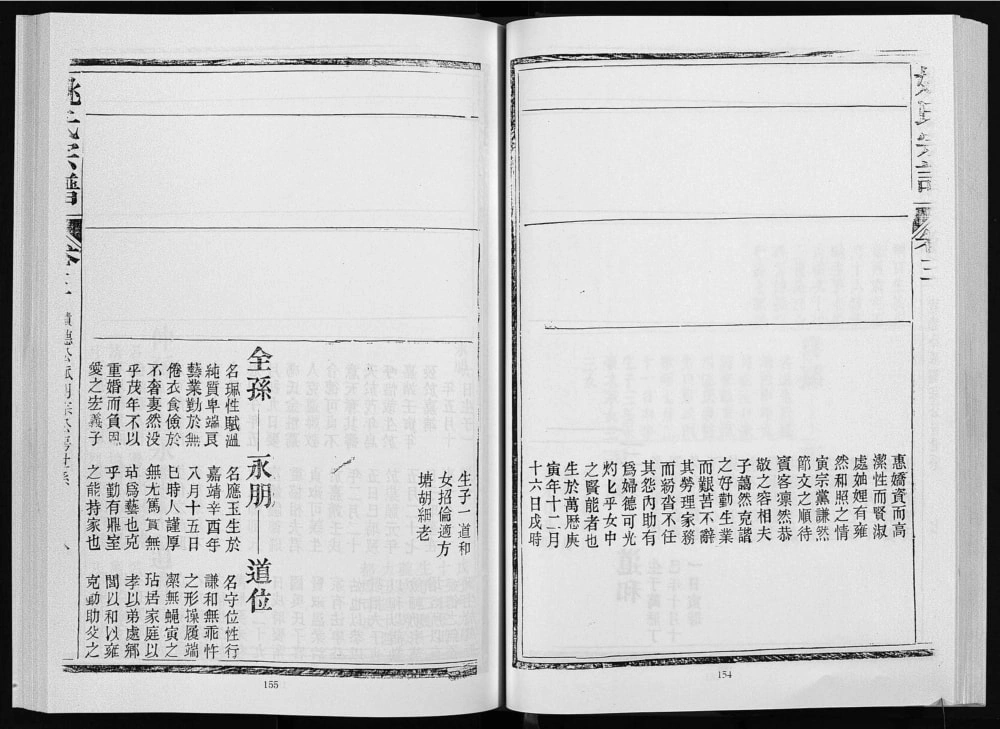 姚氏宗譜 卷三
惠嬌資而高
潔性而賢淑
處妯娌有雍
然和照之情
寅宗黨謙然
節文之順待
賓客凛然恭
敬之容相夫
子藹然克諧
之好勤生業
而艱苦不辭
其勞理家務
而紛沓不任
其怨內助有
爲婦德可光
灼匕乎女中
之賢能者也
生於萬曆庚
寅年十二月
十六日戌時
154
生子一道和
女招倫適方
塘胡細老
全孫
名珮性賦溫
純質卑端艮
藝業勤於無
倦衣食儉於
不奢妻然没
乎茂年不以
重婚而負恩
愛之宏義子
永朋
名應玉生於
嘉靖辛酉年
八月十五日
巳時人謹厚
無尤篤實無
玷爲藝也克
乎勤有鼎室
之能持家也
道位
名守位性行
謙和無乖忤
之形操履端
潔無蝇寅之
玷居家庭以
孝以弟處鄉
閭以和以雍
克動助父之
姚氏宗譜 卷三 八
155